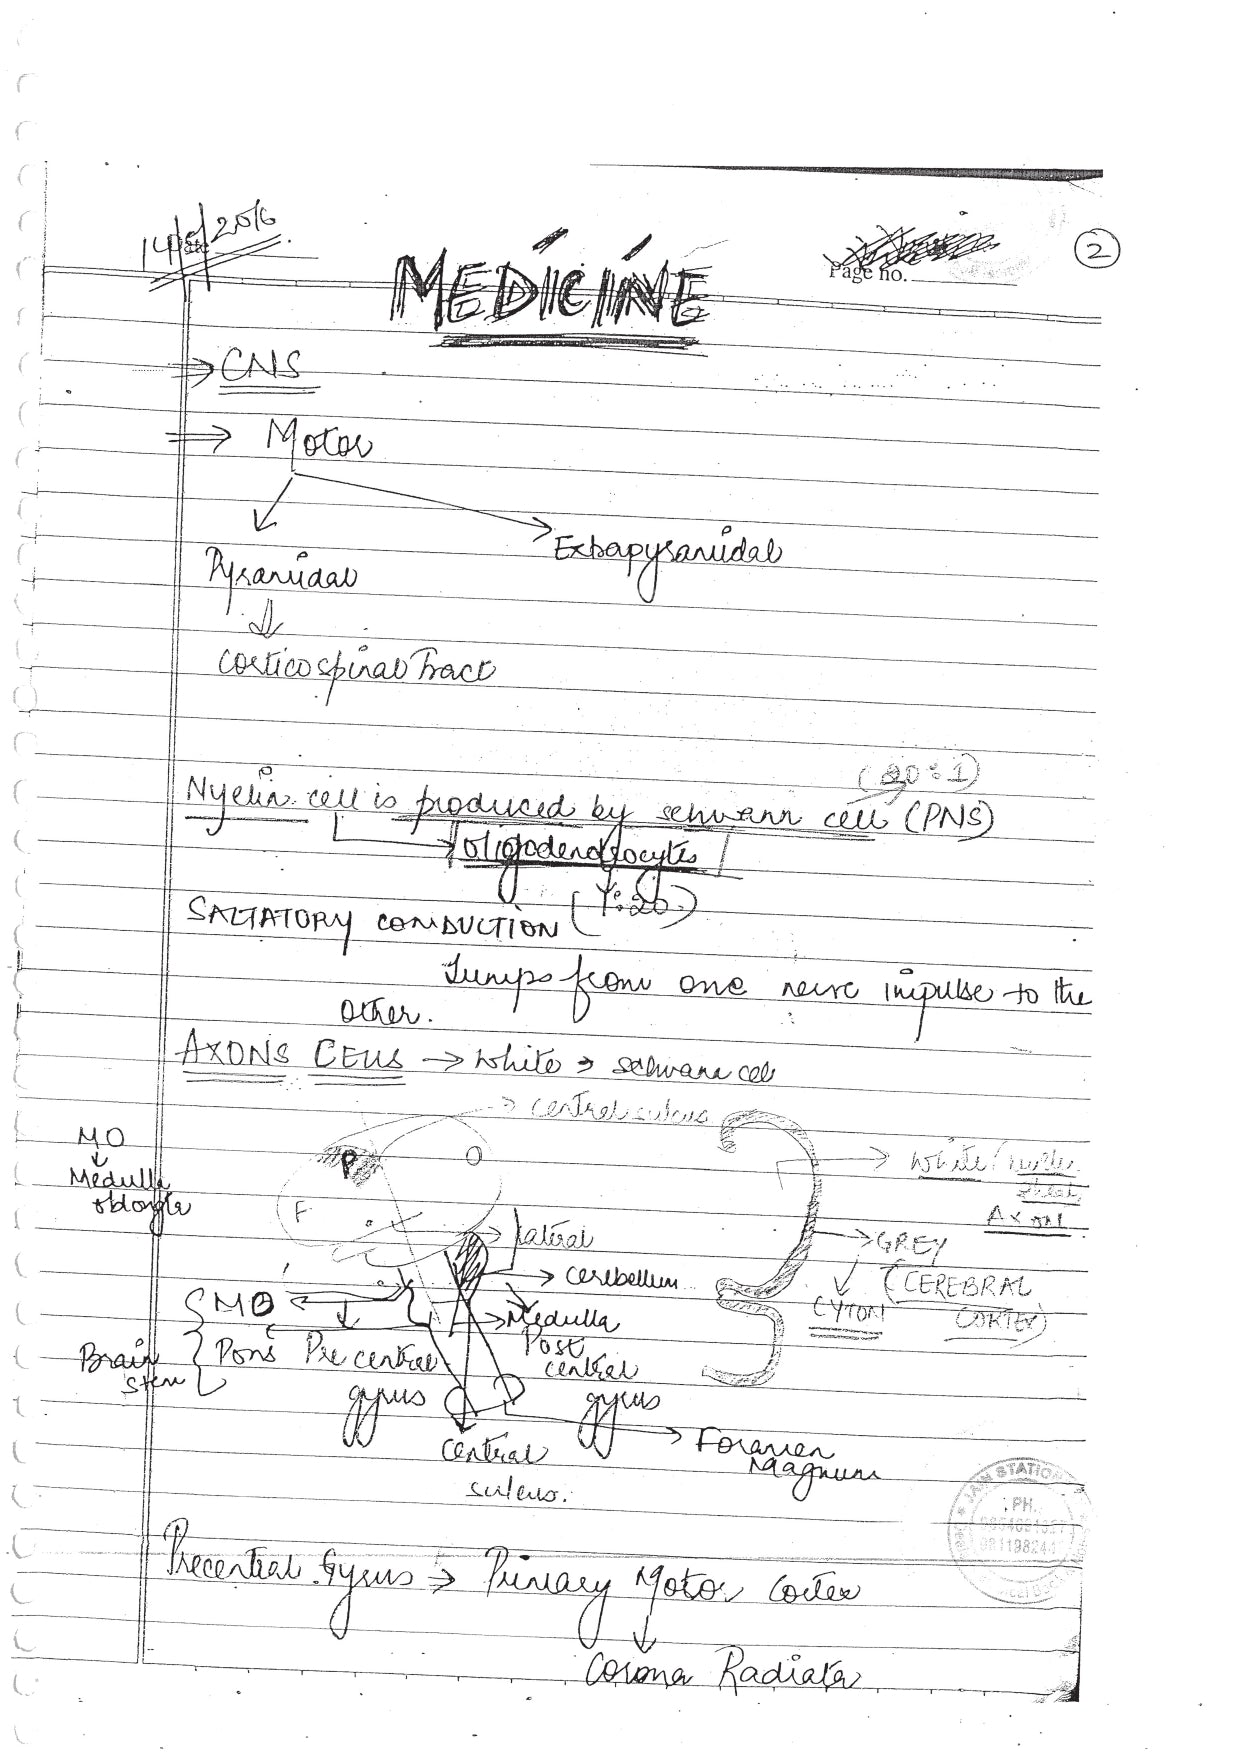 14/5/2016
Date
Page no.
2
MEDICINE
⇒ CNS
⇒ Motor
Pyramidal
Extrapyramidal
Corticospinal Tract
(20:1)
Myelin cell is produced by schwann cell (PNS)
oligodendrocytes
(1:20)
SALTATORY CONDUCTION
Jumps from one nerve impulse to the
other.
AXONS CELLS → White → schwann cell
→ central sulcus
MO
Medulla
oblongata
P
O
F
White / myelin
sheath
AXONS
lateral
GREY
(CEREBRAL
CORTEX)
CYTON
cerebellum
MO
Medulla
Brain
stem
Pons
Pre central
gyrus
Post
central
gyrus
central
sulcus.
Foramen
Magnum
JAIN STATION
PH.
Precentral Gyrus → Primary Motor Cortex
Corona Radiata